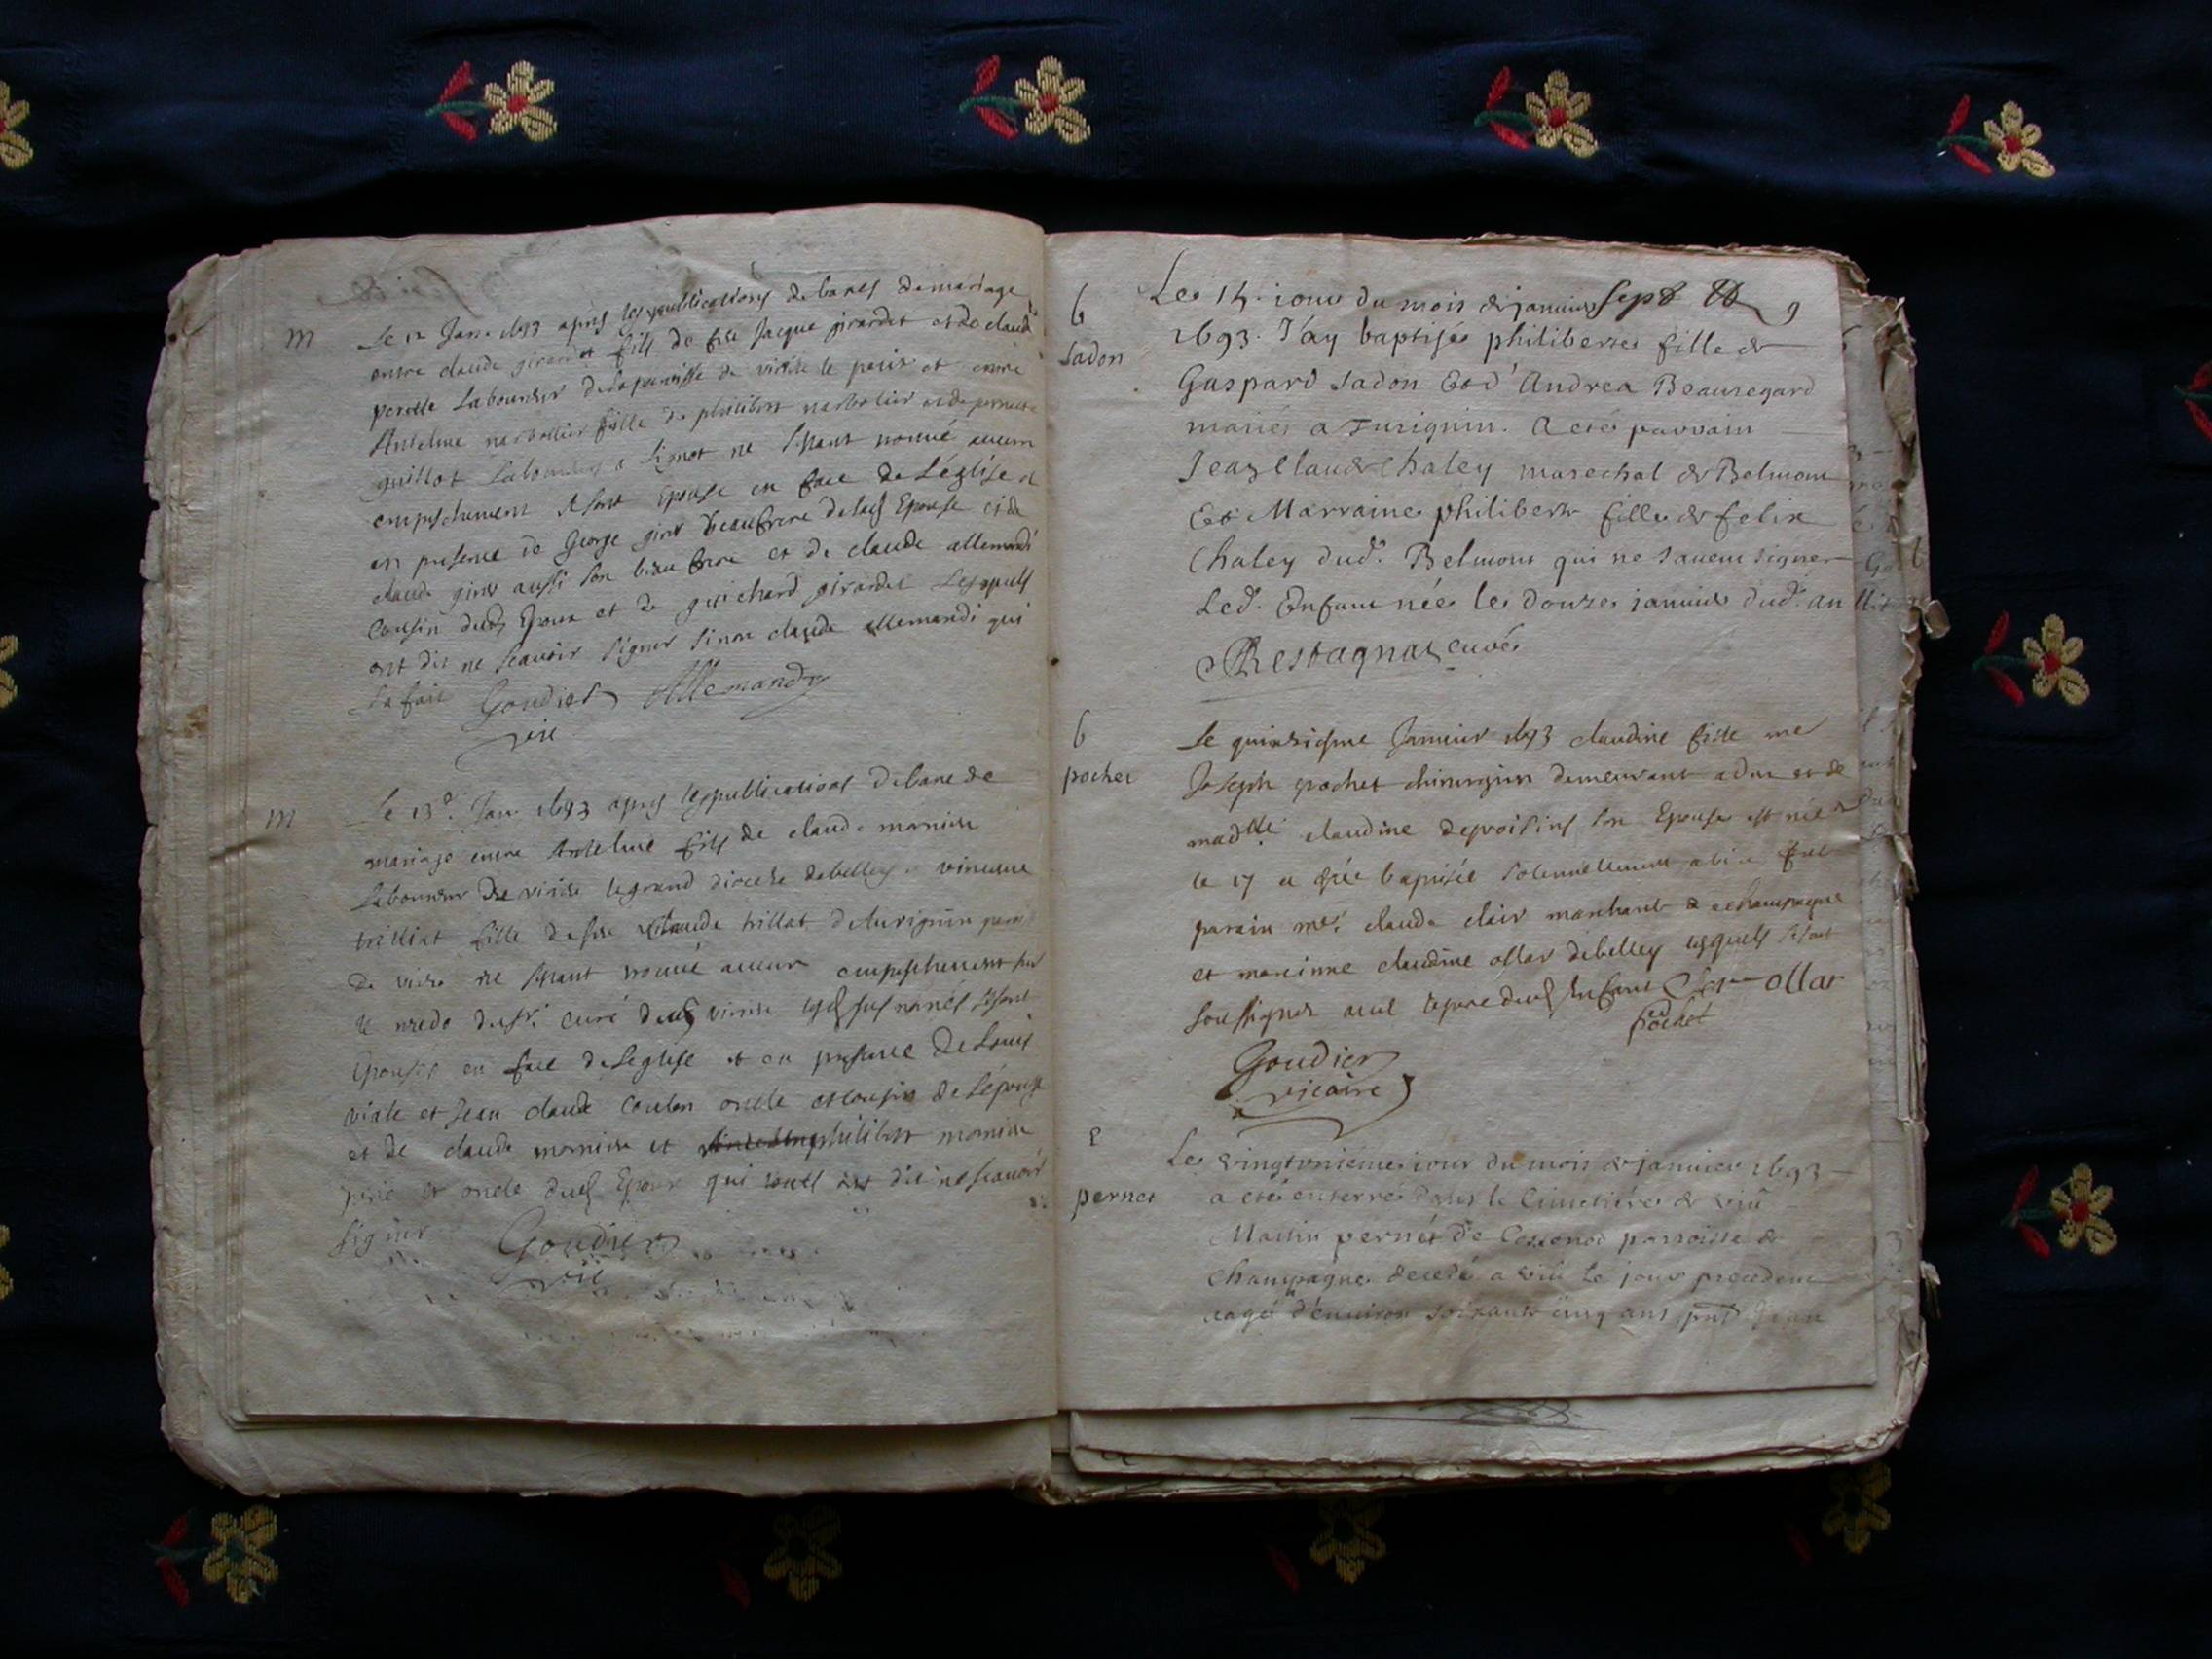 m
Le 12 Janr 1693 apres les publications de bancs de mariage
entre claude girardet fils de feu Jacque girardet et de claude
perette Laboureur de la paroisse de virieu le petit et entre
Anthelme narbollier fille de philibert narbolier et de pernette
guillot Laboureur a Lignot ne s'estant trouvé aucun
empeschement se sont Epousé en face de L'église et
en presence de George beaufrere de lad Epouse et de
claude aussi son beau frere et de claude allemandi
Cousin dud Epoux et de guichard girardet Lesquels
ont dit ne scavoir signer sinon claude allemandi qui
La fait Goudier Allemandy
vic
m
Le 13e. Janr 1693 apres les publications de banc de
mariage entre Anthelme fils de claude mornieu
Laboureur de virieu le grand diocese de belley et vincenne
trilliat fille de feu Claude trillat de turignin paroi
de vieu ne s'estant trouvé aucun empeschement sur
le credo du sr. curé dud virieu se sont
Epousés en face de Leglise et en presence de Louis
viale et Jean claude Coulon oncle et cousin de L'épouse
et de claude mornieu et philibert mornieu
pere et oncle dud Epoux qui tous ont dit ne scavoir
signer Goudier
vic
b
Sadon
Le 14. iour du mois de janvier sept 9
1693. J'ay baptisée philiberte fille de
Gaspard Sadon Et d'Andrea Beauregard
mariés a Turignin. A eté parrain
Jean Claude Chaley marechal de Belmont
Et Marraine philiberte fille de felix
Chaley dud. Belmont qui ne savent signer
Led. Enfant née le douze janvier dud. an
Restagnat curé
b
pochet
Le quinsiesme Janvier 1693 claudine fille me
Joseph pochet chirurgien demeurant a don et de
madlle claudine depoisins son Epouse est née
le 17 a été baptisée solennellement a vieu fut
parain me. claude clair marchant a champagne
et marainne claudine ollar de belley lesquels se sont
soussignes avec le pere dud Enfant Clerc ollar
pochet
Goudier
vicaire
E
pernet
Le vingtuniéme iour du mois de janvier 1693
a eté enterré dans le Cimetiére de vieu
Martin pernet de Cossonod parroisse de
Champagne decedé a vieu le jour precedent
eagé d'environ soixante cinq ans